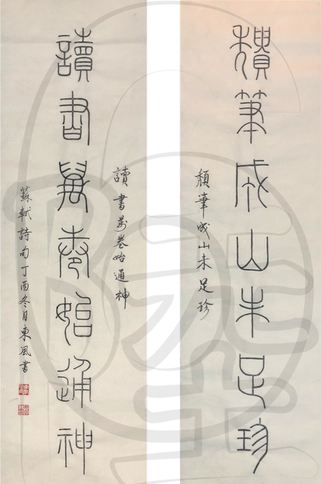 穨筆成山未足珍
頹筆成山未足珍
讀書萬卷始通神
讀書萬卷始通神
蘇軾詩句丁酉冬月東風書